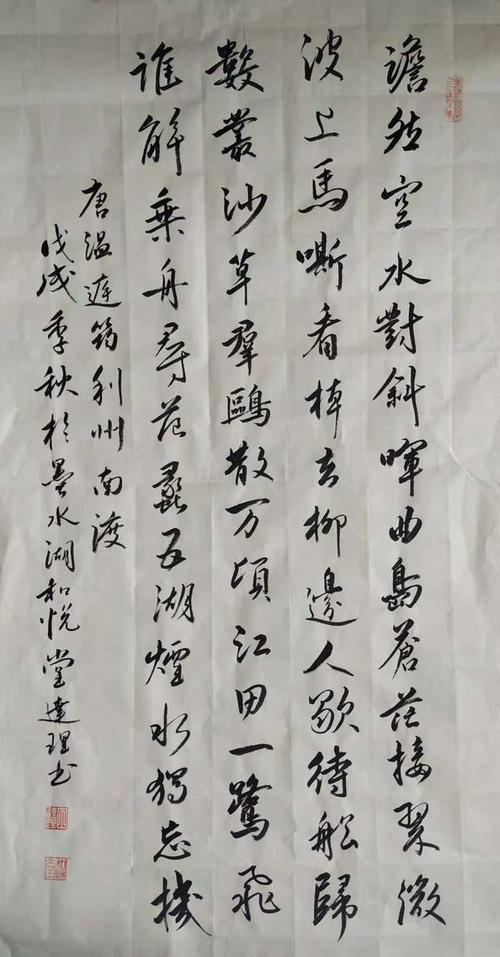 澹然空水對斜暉曲島蒼茫接翠微
波上馬嘶看棹去柳邊人歇待船歸
數叢沙草羣鷗散万頃江田一鷺飛
誰解乘舟尋范蠡五湖煙水獨忘機
唐温庭筠利州南渡
戊戌季秋於墨水湖和悦堂達理书